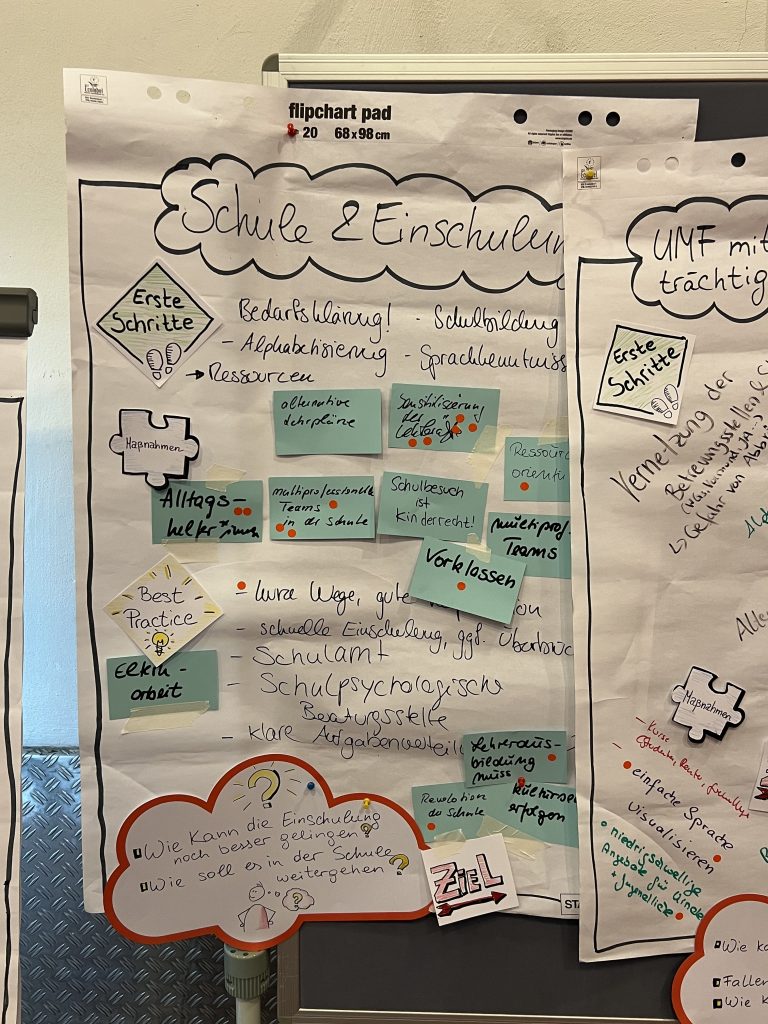 flipchart pad
20 68 x 98 cm
Schule & Einschulun
Erste
Schritte
Bedarfsklärung! - Schulbildung
- Alphabetisierung - Sprachkenntniss
→ Ressourcen
Maßnahmen
alternative
Lehrpläne
Sensibilisierung
der
Lehrkräfte
Ressourc
orientie
Alltags-
helfer*innen
multiprofessionelle
Teams
in der Schule
Schulbesuch
ist
Kinderrecht!
multiprof.
Teams
Vorklassen
Best
Practice
- kurze Wege, gute
- schnelle Einschulung, ggf. Überbrüc
- Schulamt
- Schulpsychologische
Beratungsstelle
- klare Aufgabenverteil
Eltern-
arbeit
Lehreraus-
bildung
muss
kulturse
erfolgen
Revolution
der Schule
?
Wie kann die Einschulung
noch besser gelingen?
Wie soll es in der Schule
weitergehen?
ZIEL
STA
UMF mit
trächtig
Erste
Schritte
Vernetzung der
Betreuungsstellen &
↳ Gefahr von
Maßnahmen
- Kurse
- einfache Sprache
visualisieren
niedrigschwellige
Angebote für Kinder
+ Jugendliche
Wie ka
Fallen
Wie k